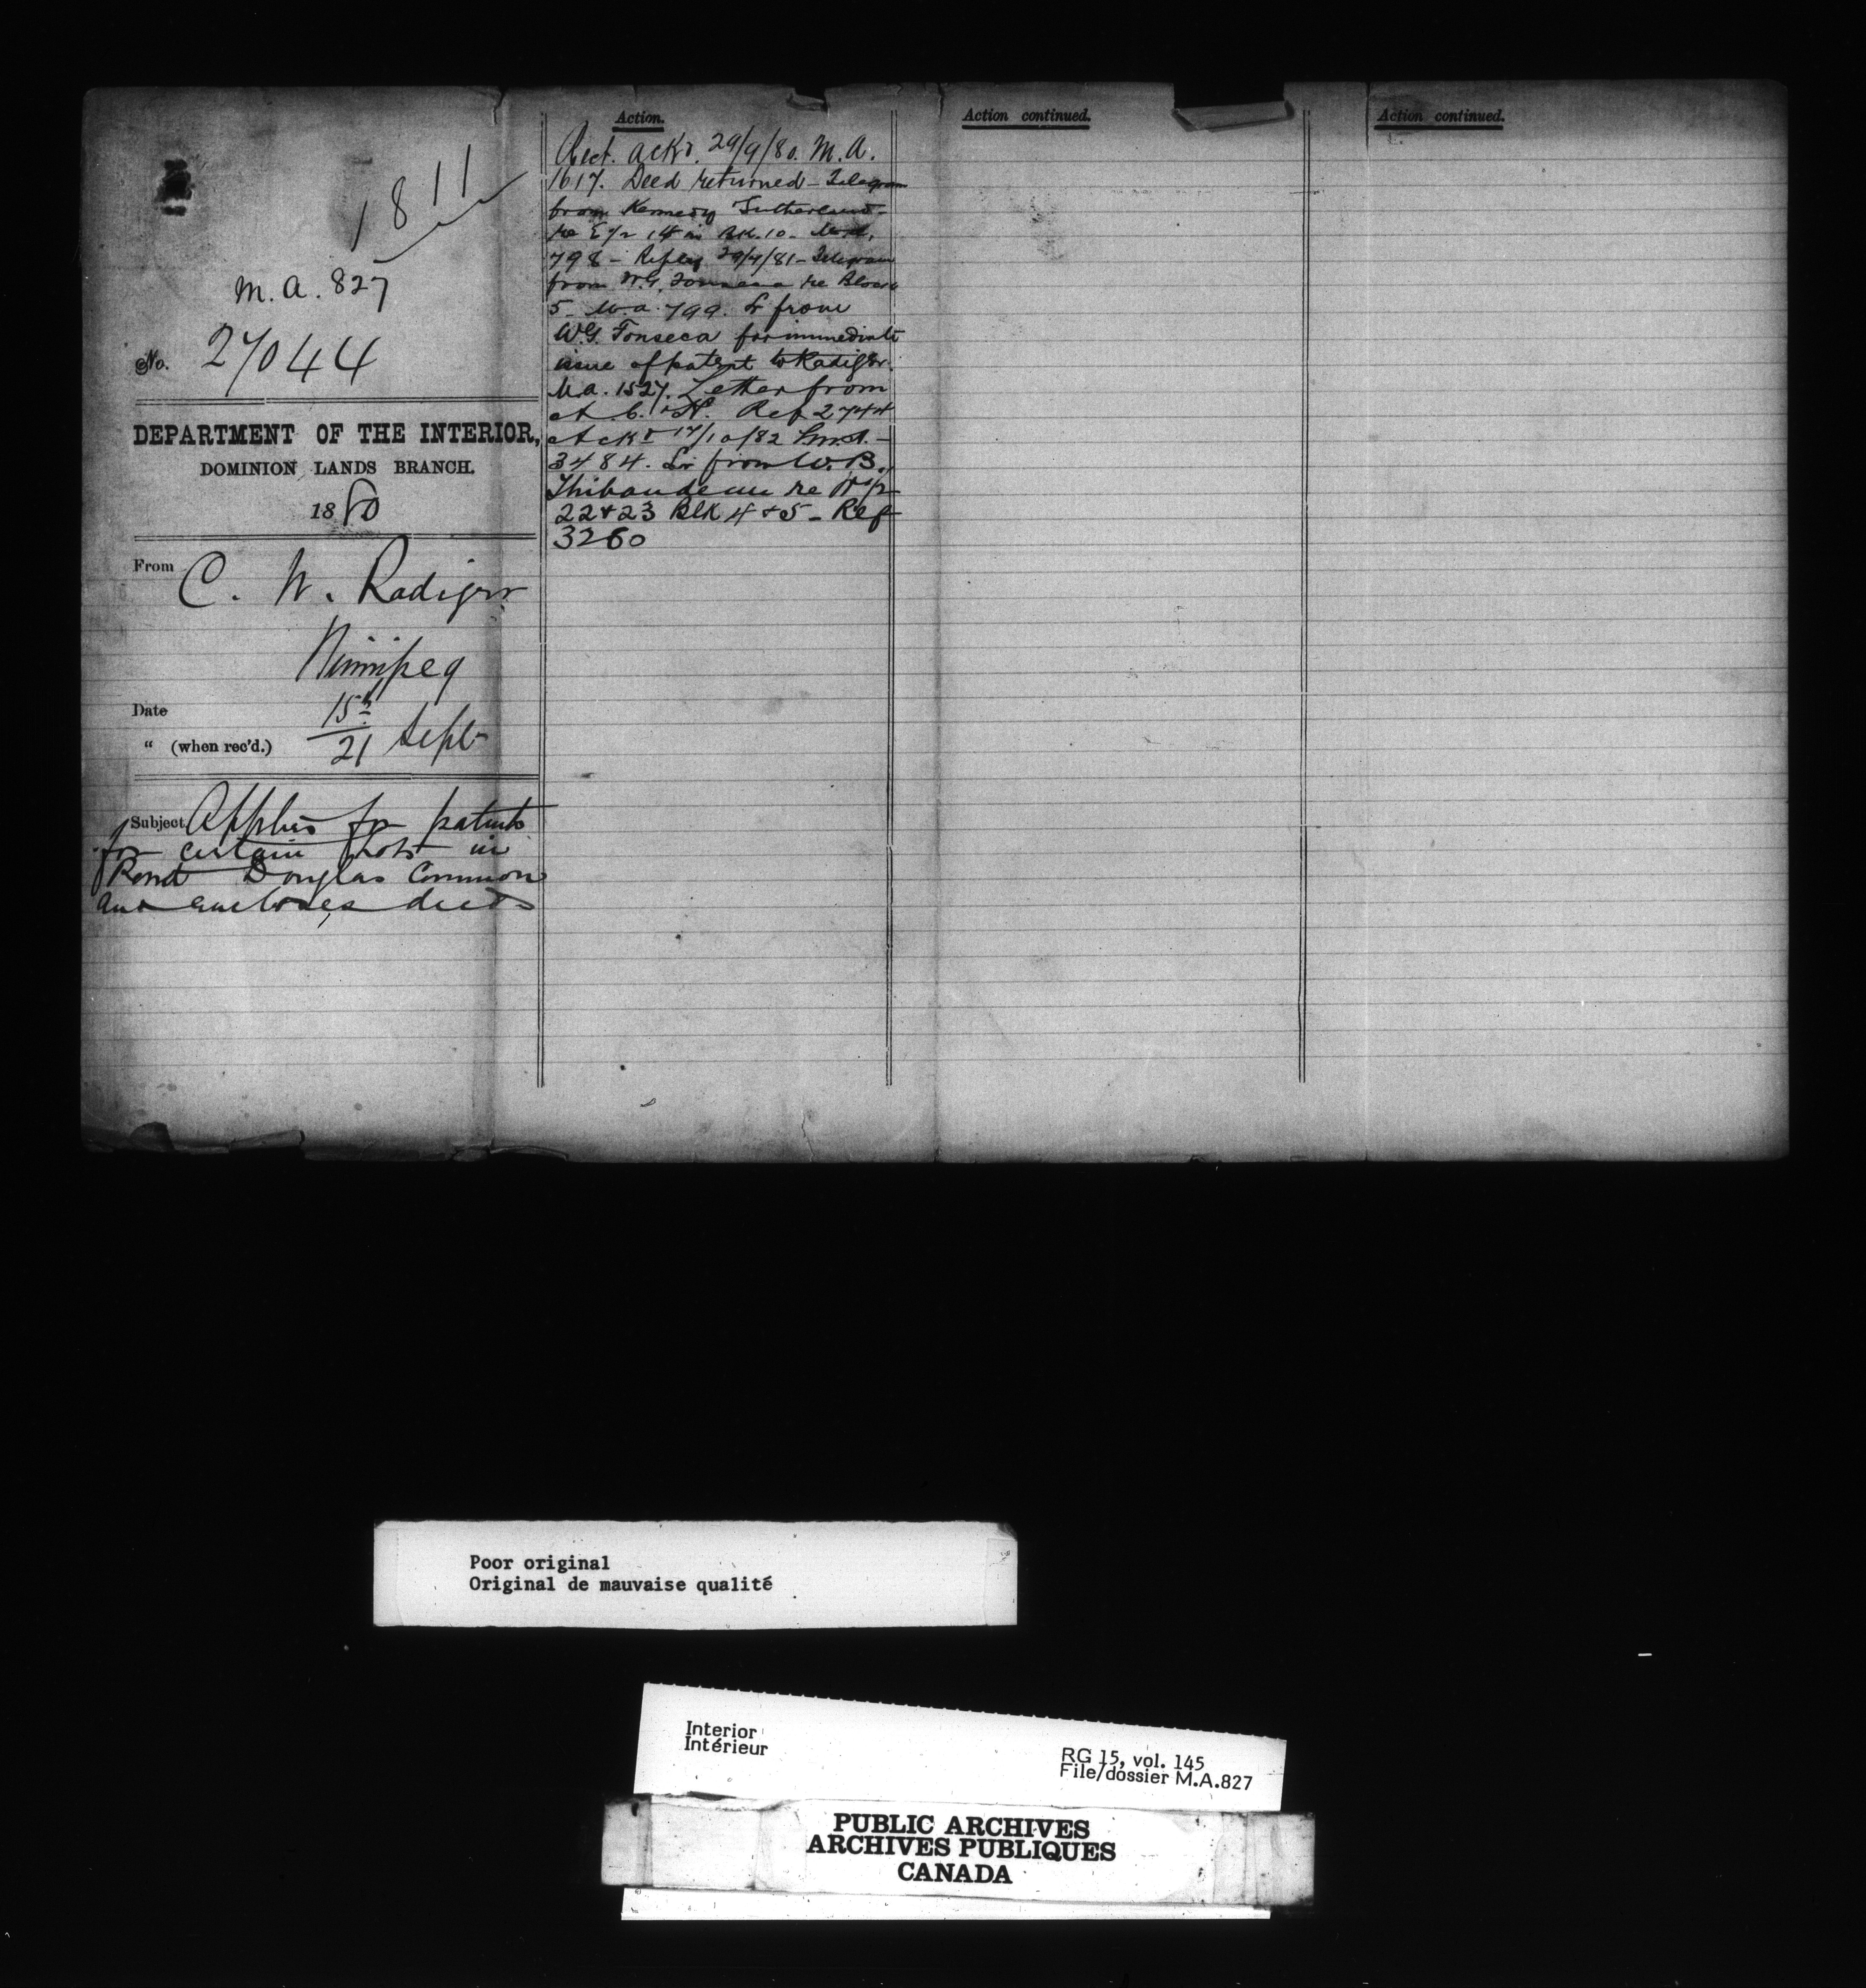 1811
M.A. 827
No. 27044
DEPARTMENT OF THE INTERIOR,
DOMINION LANDS BRANCH.
1880
From C. W. Radiger
Winnipeg
Date 15th
" (when rec'd.) 21 Sept
Subject Applies for patents
for certain lots in
Point Douglas Common
and encloses deeds
Action.
Rect. ackd. 29/9/80. M.A.
1617. Deed returned - Telegram
from Kennedy Sutherland -
re E 1/2 14 in Bk. 10.
798 - Reply 29/7/81 - Telegram
from W.G. Fonseca re Block
5 - M.A. 799. Lr from
W.G. Fonseca for immediate
issue of patent to Radiger.
M.A. 1527. Letter from
A. C. & N. Ref 2744
Ackd 17/10/82
3484. Lr from W. B.
Thibaudeau re
22 & 23 Blk 4 & 5 - Ref
3260
Action continued.
Action continued.
Poor original
Original de mauvaise qualité
Interior
Intérieur
RG 15, vol. 145
File/dossier M.A.827
PUBLIC ARCHIVES
ARCHIVES PUBLIQUES
CANADA